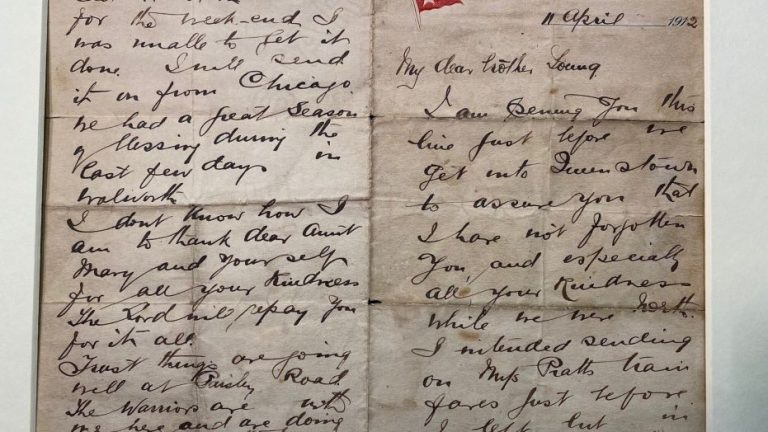 11 April 1912
My dear brother Young
I am penning you this
line just before we
get into Queenstown
to assure you that
I have not forgotten
you and especially
all your kindness
while we were North.
I intended sending
on Miss Pratts train
fares just before
I left but in
for the week-end I
was unable to get it
done. I will send
it on from Chicago
we had a great season
of blessing during the
last few days in
Walworth
I dont know how I
am to thank dear Aunt
Mary and yourself
for all your kindness
The Lord will repay you
for it all.
Trust things are going
well at Paisley Road.
The Warriors are with
me here and are doing